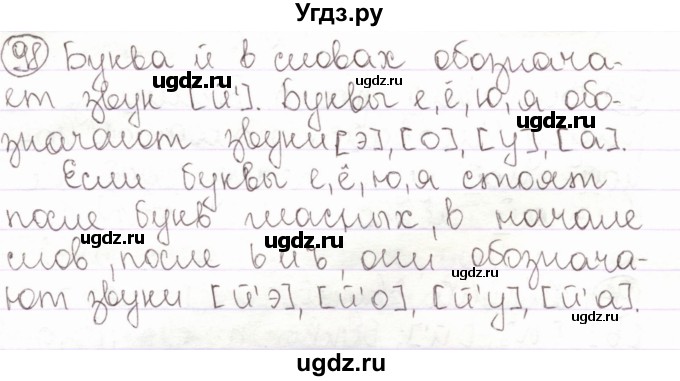 Угдз.ру
98 Буква й в словах обознача-
ugdz.ru ugdz.ru
ет звук [й']. Буквы е, ё, ю, я обо-
ugdz.ru
значают звуки [э], [о], [у], [а].
Если буквы е, ё, ю, я стоят
после букв гласных, в начале
ugdz.ru ugdz.ru
слов, после ь и ъ, они обознача-
ugdz.ru
ют звуки [й'э], [й'о], [й'у], [й'а].
ugdz.ru
ugdz.ru